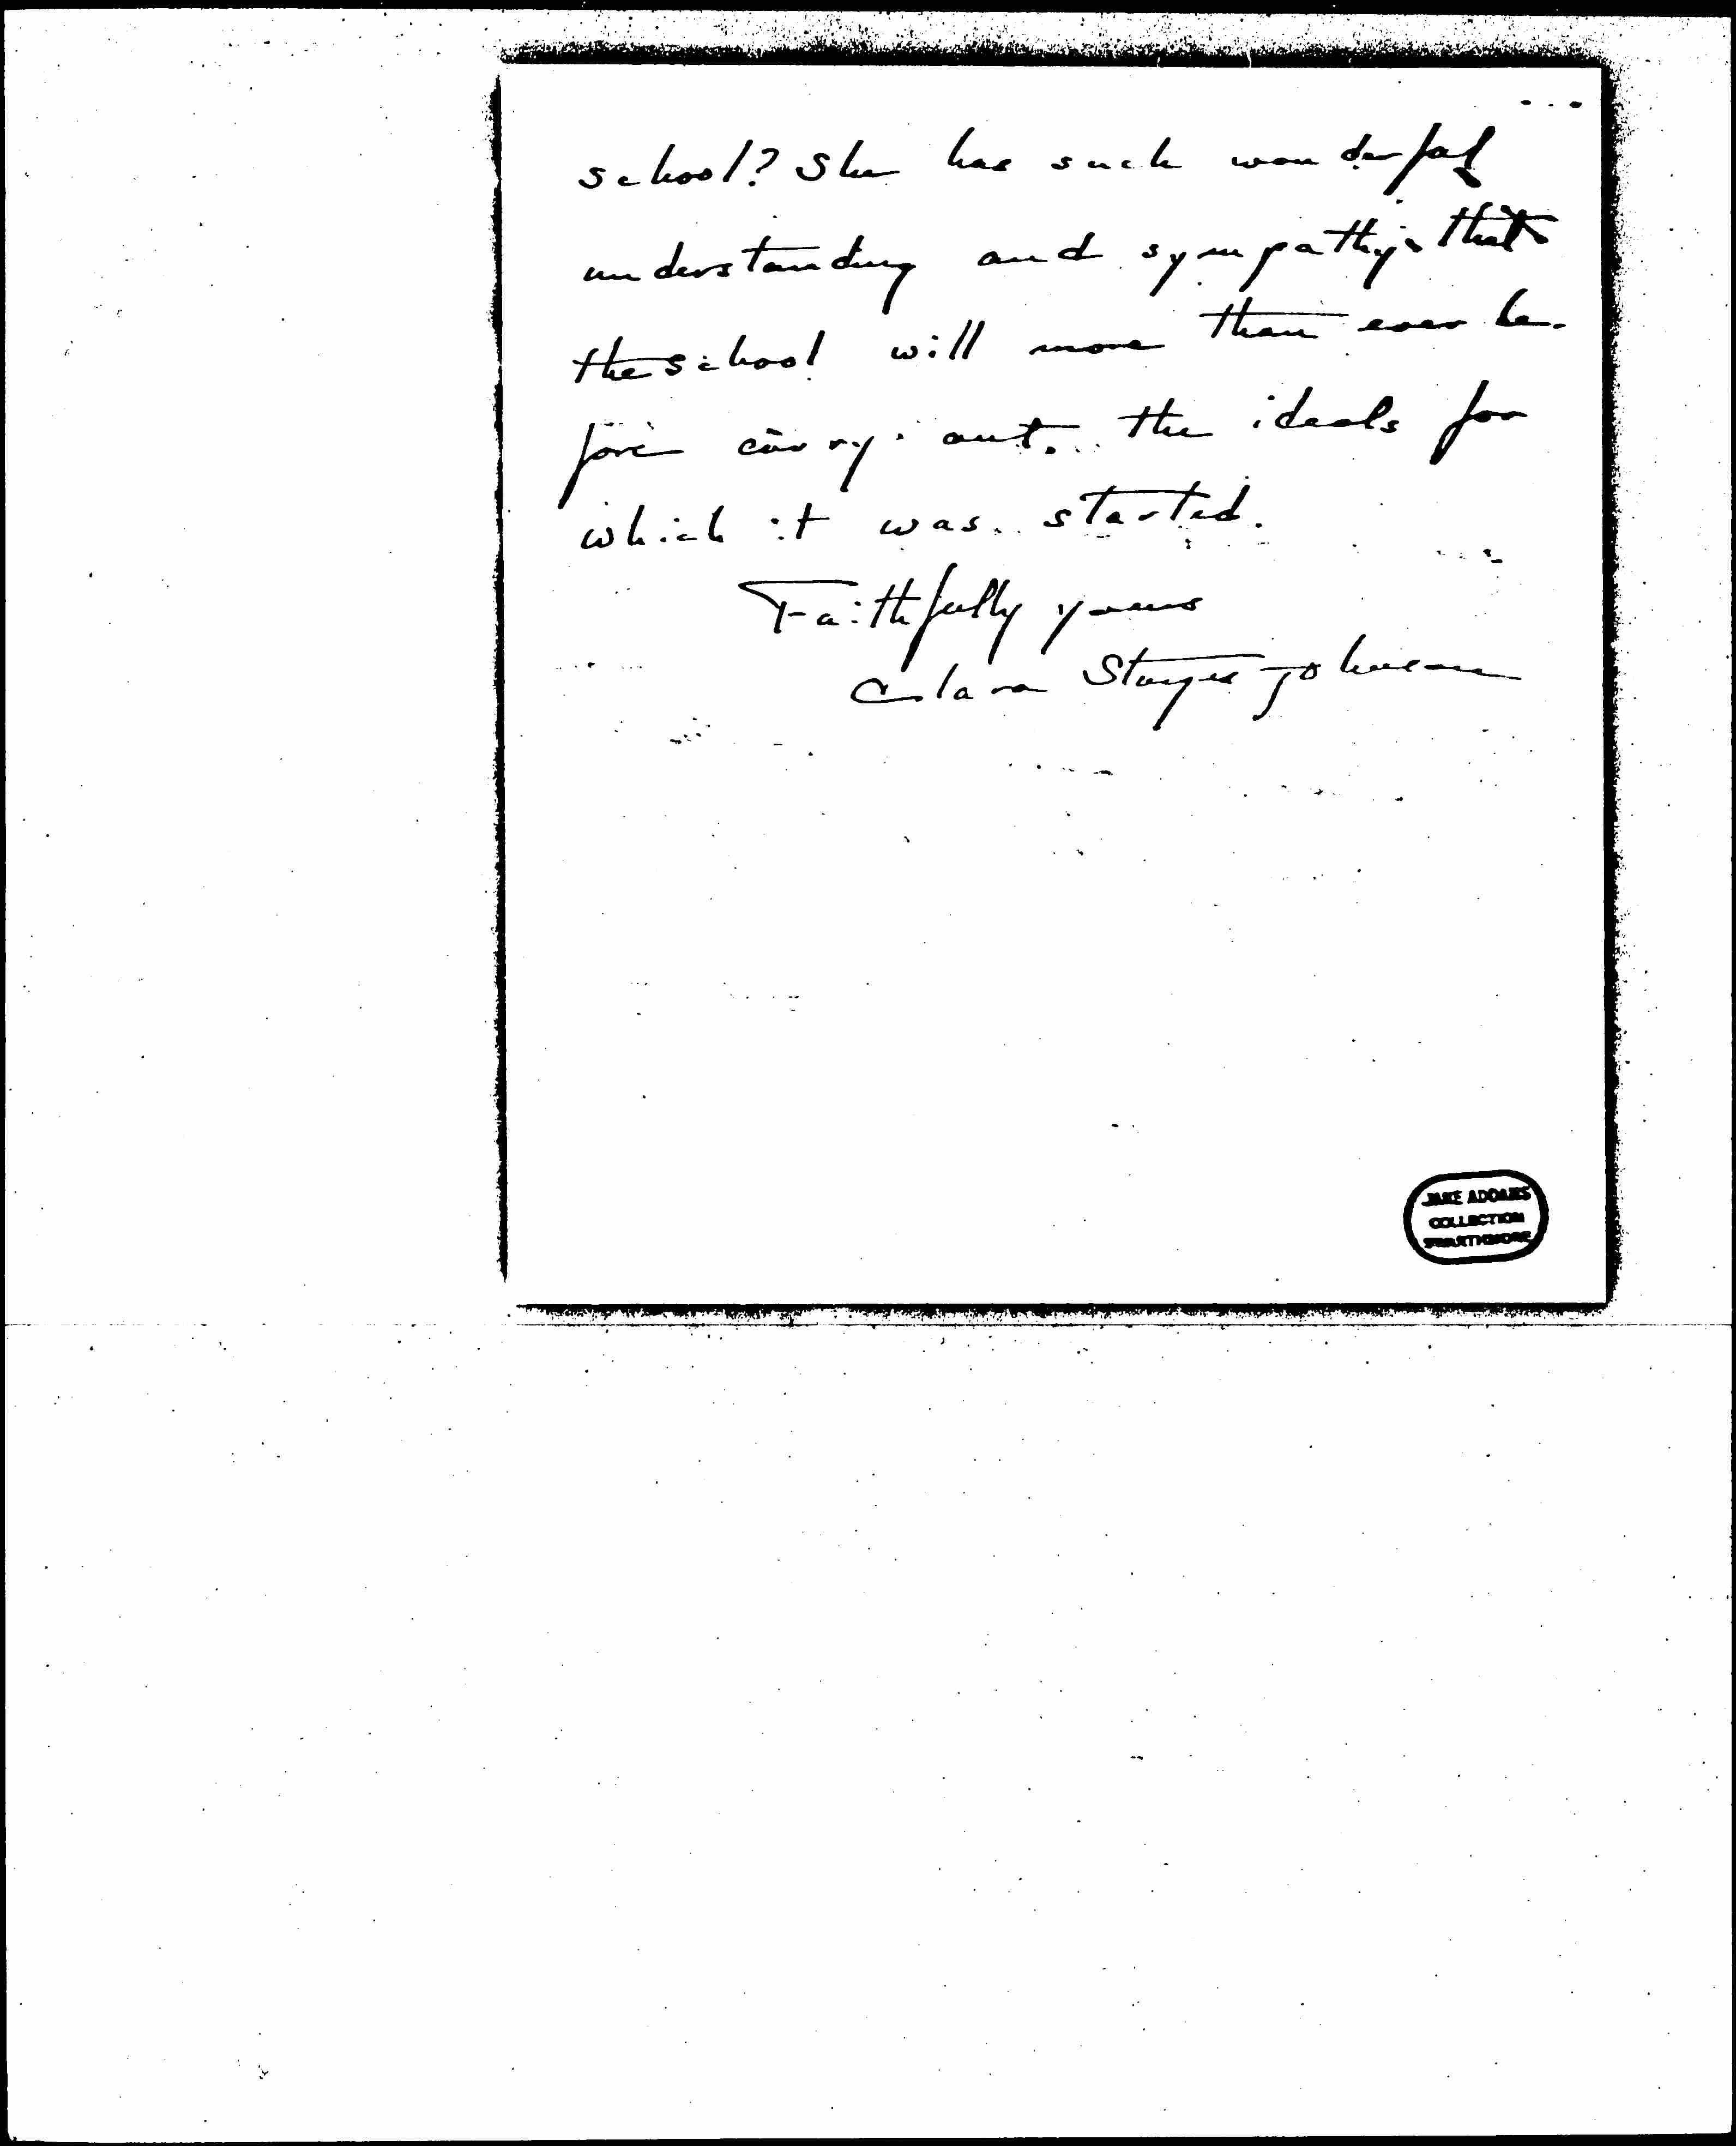 school? She has such wonderful
understanding and sympathy that
the school will more than ever be-
fore carry out the ideals for
which it was started.
Faithfully yours
Clara Sturges Johnson
JANE ADDAMS
COLLECTION
SWARTHMORE